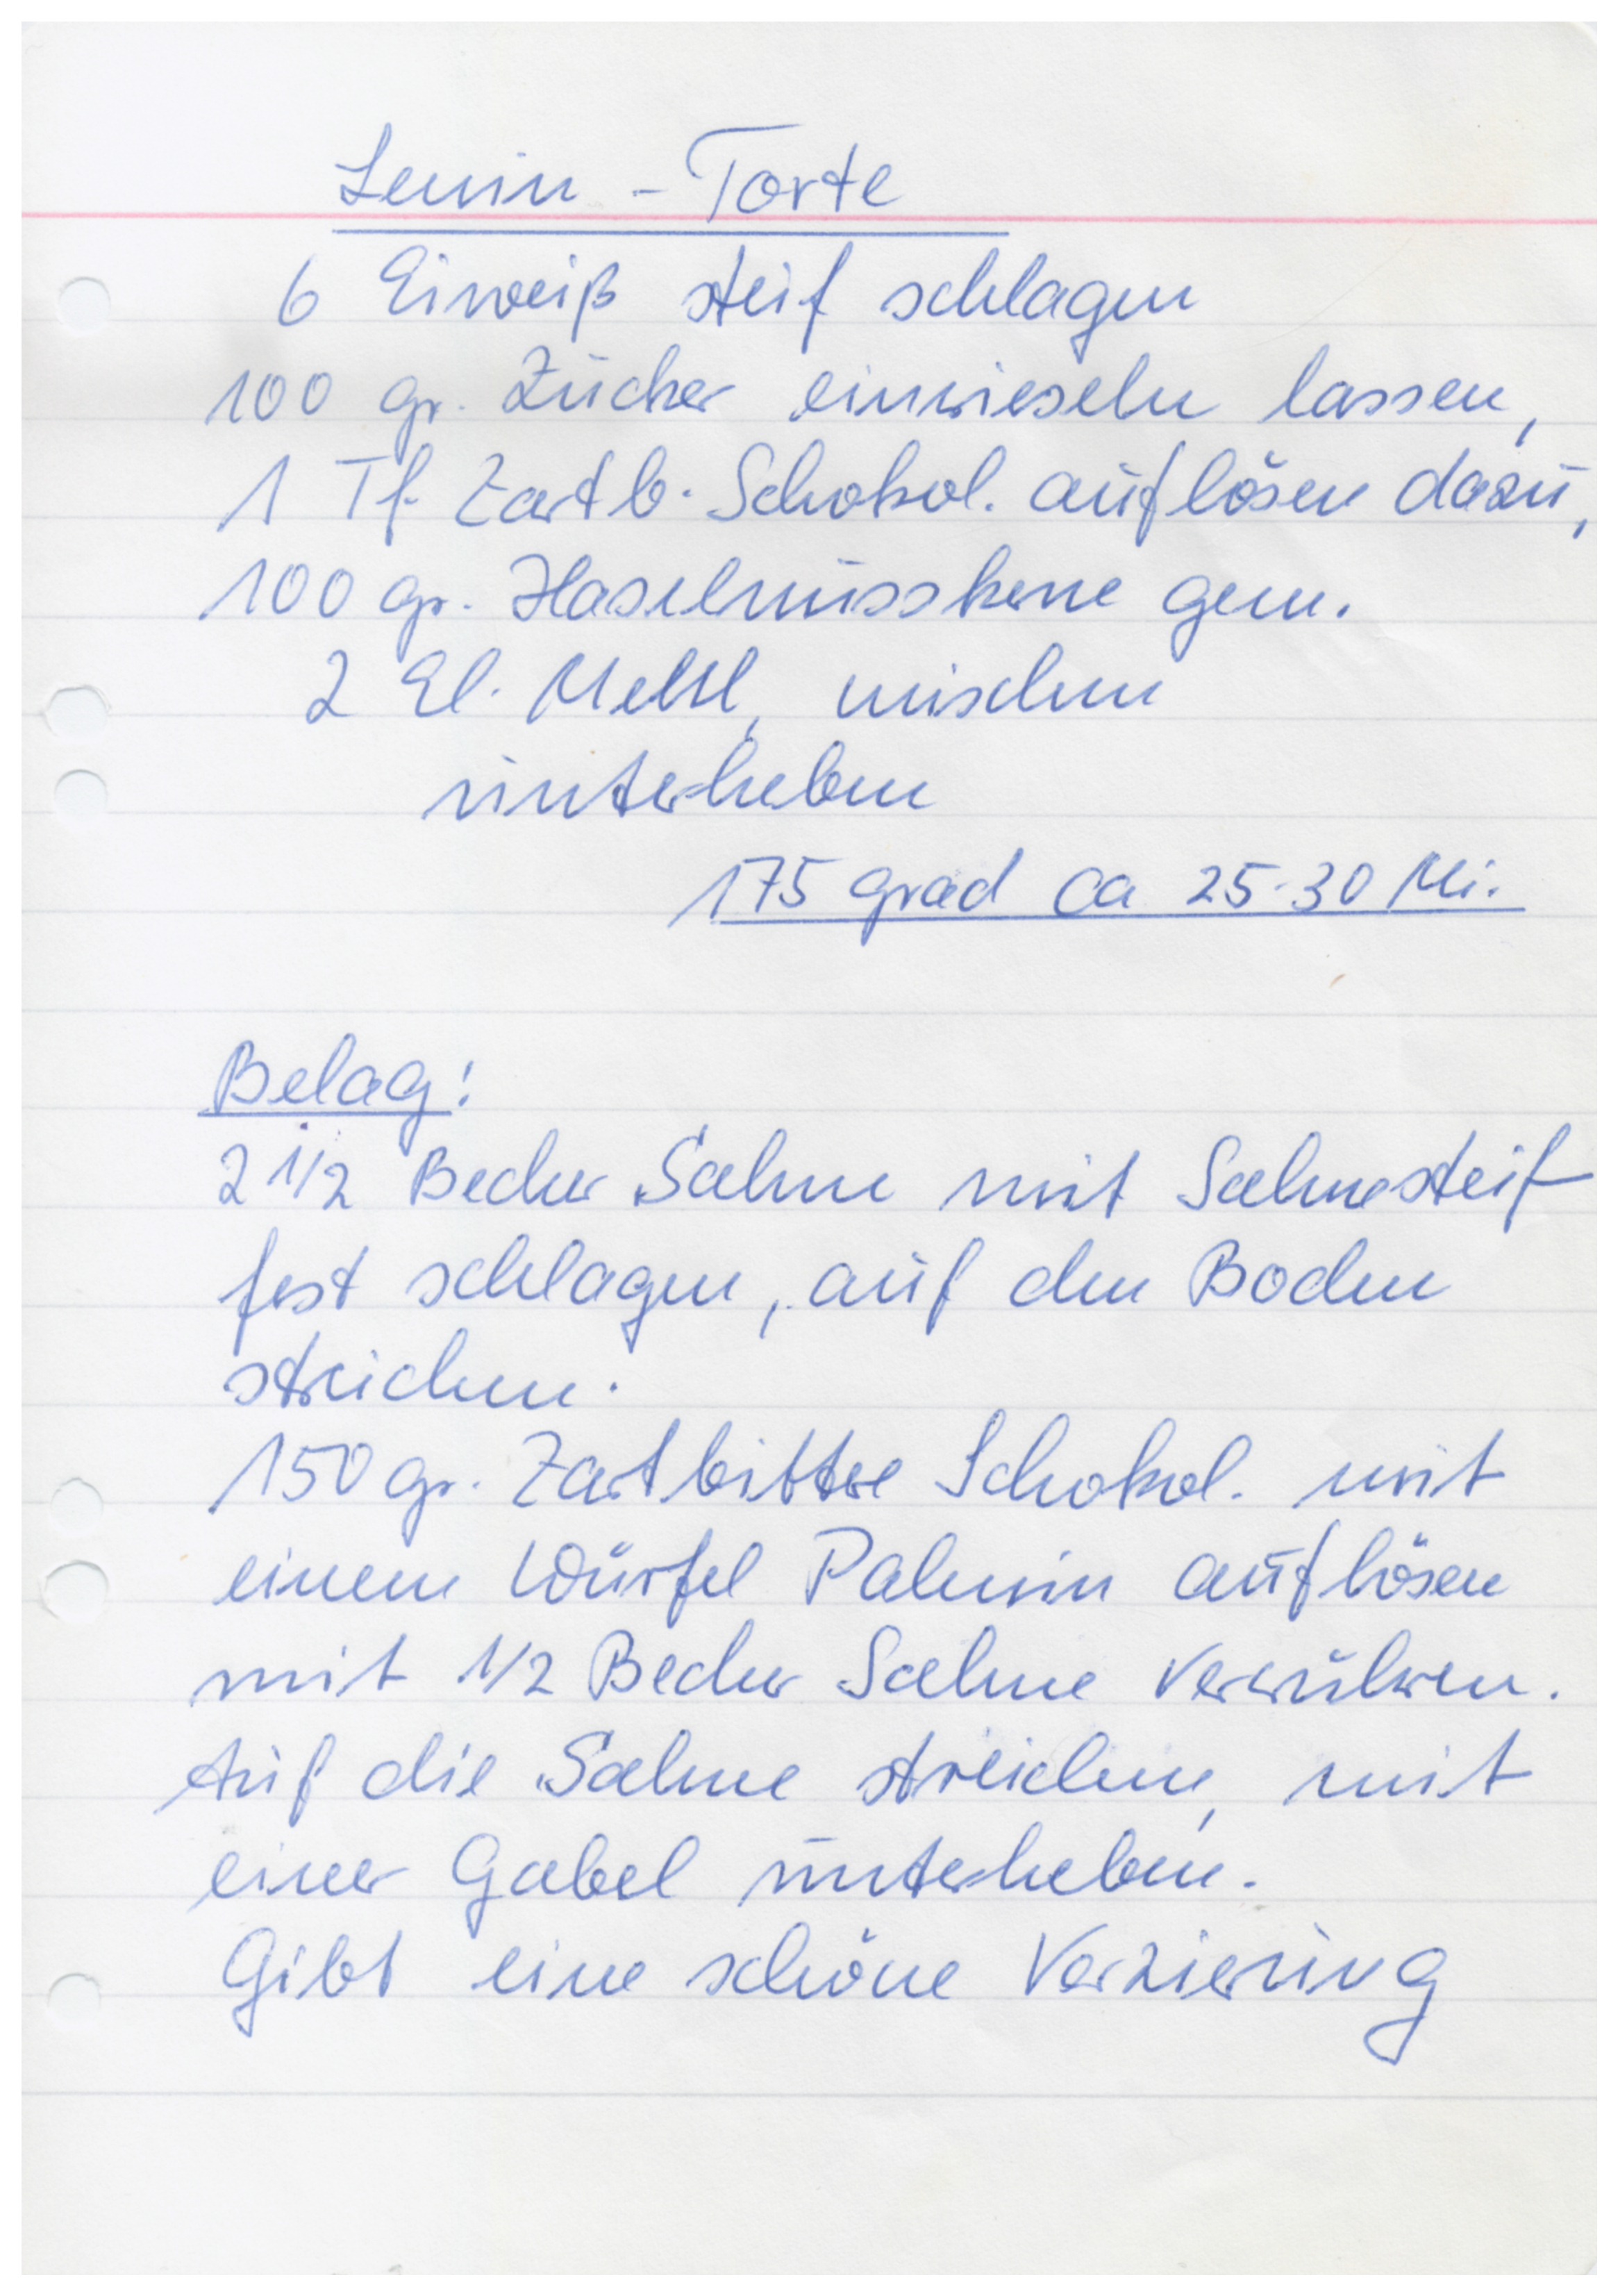 Lenin - Torte
6 Eiweiß steif schlagen
100 gr. Zucker einrieseln lassen,
1 Tf. Zartb. Schokol. auflösen dazu,
100 gr. Haselnusskerne gem.
2 El. Mehl, mischen
unterheben
175 grad ca 25-30 Mi.
Belag:
2 1/2 Becher Sahne mit Sahnesteif
fest schlagen, auf den Boden
streichen.
150 gr. Zartbittere Schokol. mit
einem Würfel Palmin auflösen
mit 1/2 Becher Sahne verrühren.
Auf die Sahne streichen, mit
einer Gabel unterheben.
Gibt eine schöne Verzierung